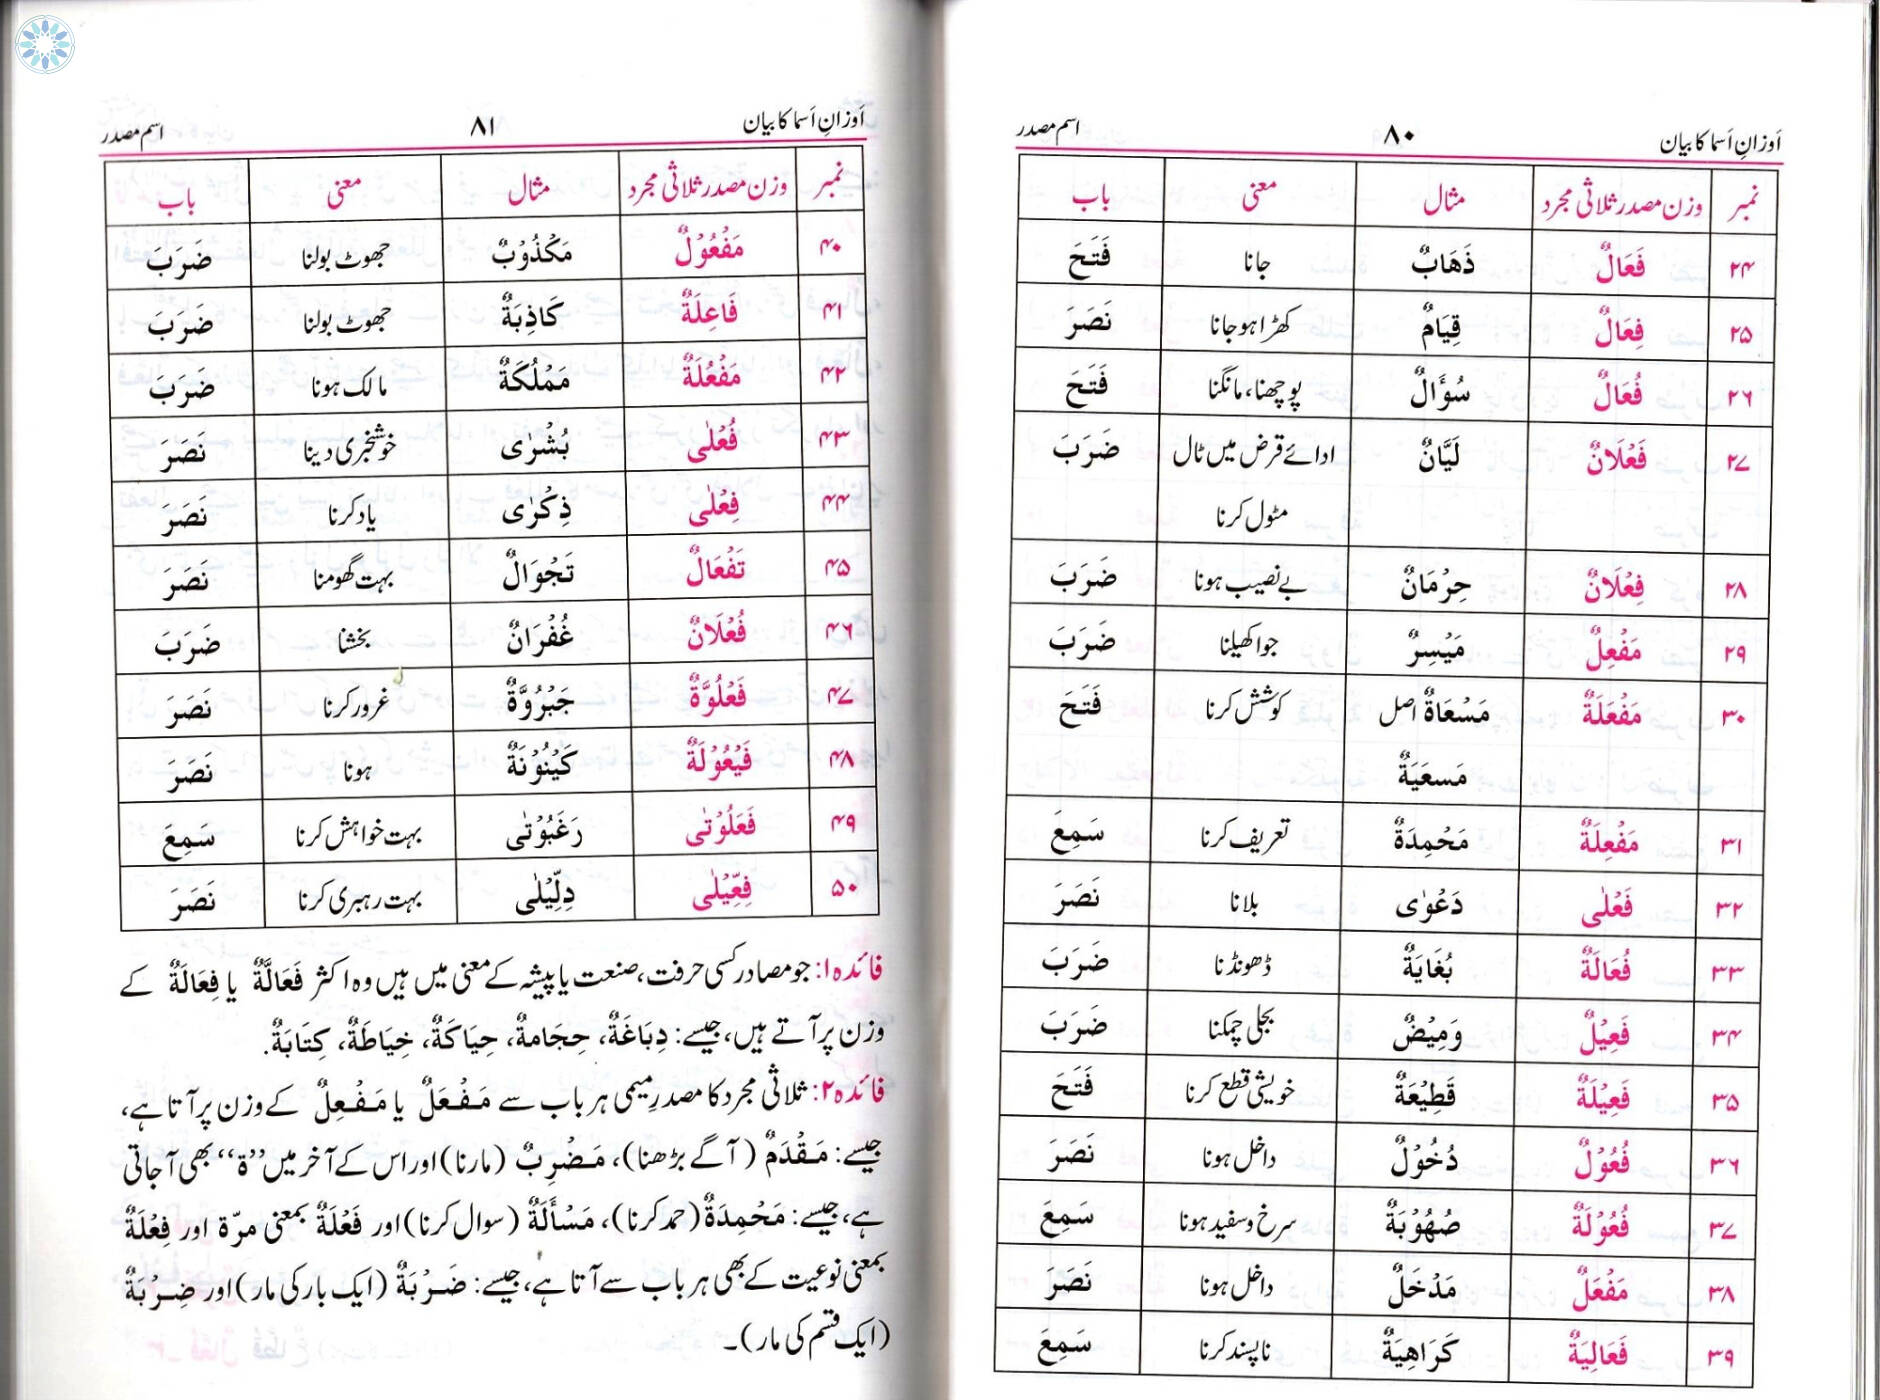 اَوزانِ اَسما کا بیان ۸۰ اسم مصدر
نمبر وزن مصدر ثلاثی مجرد مثال معنی باب
۲۴ فَعَالٌ ذَهَابٌ جانا فَتَحَ
۲۵ فِعَالٌ قِيَامٌ کھڑا ہوجانا نَصَرَ
۲۶ فُعَالٌ سُؤَالٌ پوچھنا، مانگنا فَتَحَ
۲۷ فَعْلَانٌ لَيَّانٌ ادائے قرض میں ٹال ضَرَبَ
مٹول کرنا
۲۸ فِعْلَانٌ حِرْمَانٌ بے نصیب ہونا ضَرَبَ
۲۹ مَفْعِلٌ مَيْسِرٌ جوا کھیلنا ضَرَبَ
۳۰ مَفْعَلَةٌ مَسْعَاةٌ اصل کوشش کرنا فَتَحَ
مَسعَيَةٌ
۳۱ مَفْعِلَةٌ مَحْمِدَةٌ تعریف کرنا سَمِعَ
۳۲ فَعْلٰى دَعْوٰى بلانا نَصَرَ
۳۳ فُعَالَةٌ بُغَايَةٌ ڈھونڈنا ضَرَبَ
۳۴ فَعِيْلٌ وَمِيْضٌ بجلی چمکنا ضَرَبَ
۳۵ فَعِيْلَةٌ قَطِيْعَةٌ خویشی قطع کرنا فَتَحَ
۳۶ فُعُوْلٌ دُخُوْلٌ داخل ہونا نَصَرَ
۳۷ فُعُوْلَةٌ صُهُوْبَةٌ سرخ وسفید ہونا سَمِعَ
۳۸ مَفْعَلٌ مَدْخَلٌ داخل ہونا نَصَرَ
۳۹ فَعَالِيَةٌ كَرَاهِيَةٌ ناپسند کرنا سَمِعَ
اَوزانِ اَسما کا بیان ۸۱ اسم مصدر
نمبر وزن مصدر ثلاثی مجرد مثال معنی باب
۴۰ مَفْعُوْلٌ مَكْذُوْبٌ جھوٹ بولنا ضَرَبَ
۴۱ فَاعِلَةٌ كَاذِبَةٌ جھوٹ بولنا ضَرَبَ
۴۲ مَفْعُلَةٌ مَمْلُكَةٌ مالک ہونا ضَرَبَ
۴۳ فُعْلٰى بُشْرٰى خوشخبری دینا نَصَرَ
۴۴ فِعْلٰى ذِكْرٰى یاد کرنا نَصَرَ
۴۵ تَفْعَالٌ تَجْوَالٌ بہت گھومنا نَصَرَ
۴۶ فُعْلَانٌ غُفْرَانٌ بخشنا ضَرَبَ
۴۷ فَعْلُوَّةٌ جَبْرُوَّةٌ غرور کرنا نَصَرَ
۴۸ فَيْعُوْلَةٌ كَيْنُوْنَةٌ ہونا نَصَرَ
۴۹ فَعَلُوْتٰى رَغَبُوْتٰى بہت خواہش کرنا سَمِعَ
۵۰ فِعِّيْلٰى دِلِّيْلٰى بہت رہبری کرنا نَصَرَ
فائدہ۱: جو مصادر کسی حرفت، صنعت یا پیشہ کے معنی میں ہیں وہ اکثر فَعَالَةٌ یا فِعَالَةٌ کے
وزن پر آتے ہیں، جیسے: دِبَاغَةٌ، حِجَامةٌ، حِيَاكَةٌ، خِيَاطَةٌ، كِتَابَةٌ.
فائدہ۲: ثلاثی مجرد کا مصدرِ میمی ہر باب سے مَفْعَلٌ یا مَفْعِلٌ کے وزن پر آتا ہے،
جیسے: مَقْدَمٌ (آگے بڑھنا)، مَضْرِبٌ (مارنا) اور اس کے آخر میں ’’ة‘‘ بھی آجاتی
ہے، جیسے: مَحْمِدَةٌ (حمد کرنا)، مَسْأَلَةٌ (سوال کرنا) اور فَعْلَةٌ بمعنی مرّة اور فِعْلَةٌ
بمعنی نوعیت کے بھی ہر باب سے آتا ہے، جیسے: ضَرْبَةٌ (ایک بار کی مار) اور ضِرْبَةٌ
(ایک قسم کی مار)۔